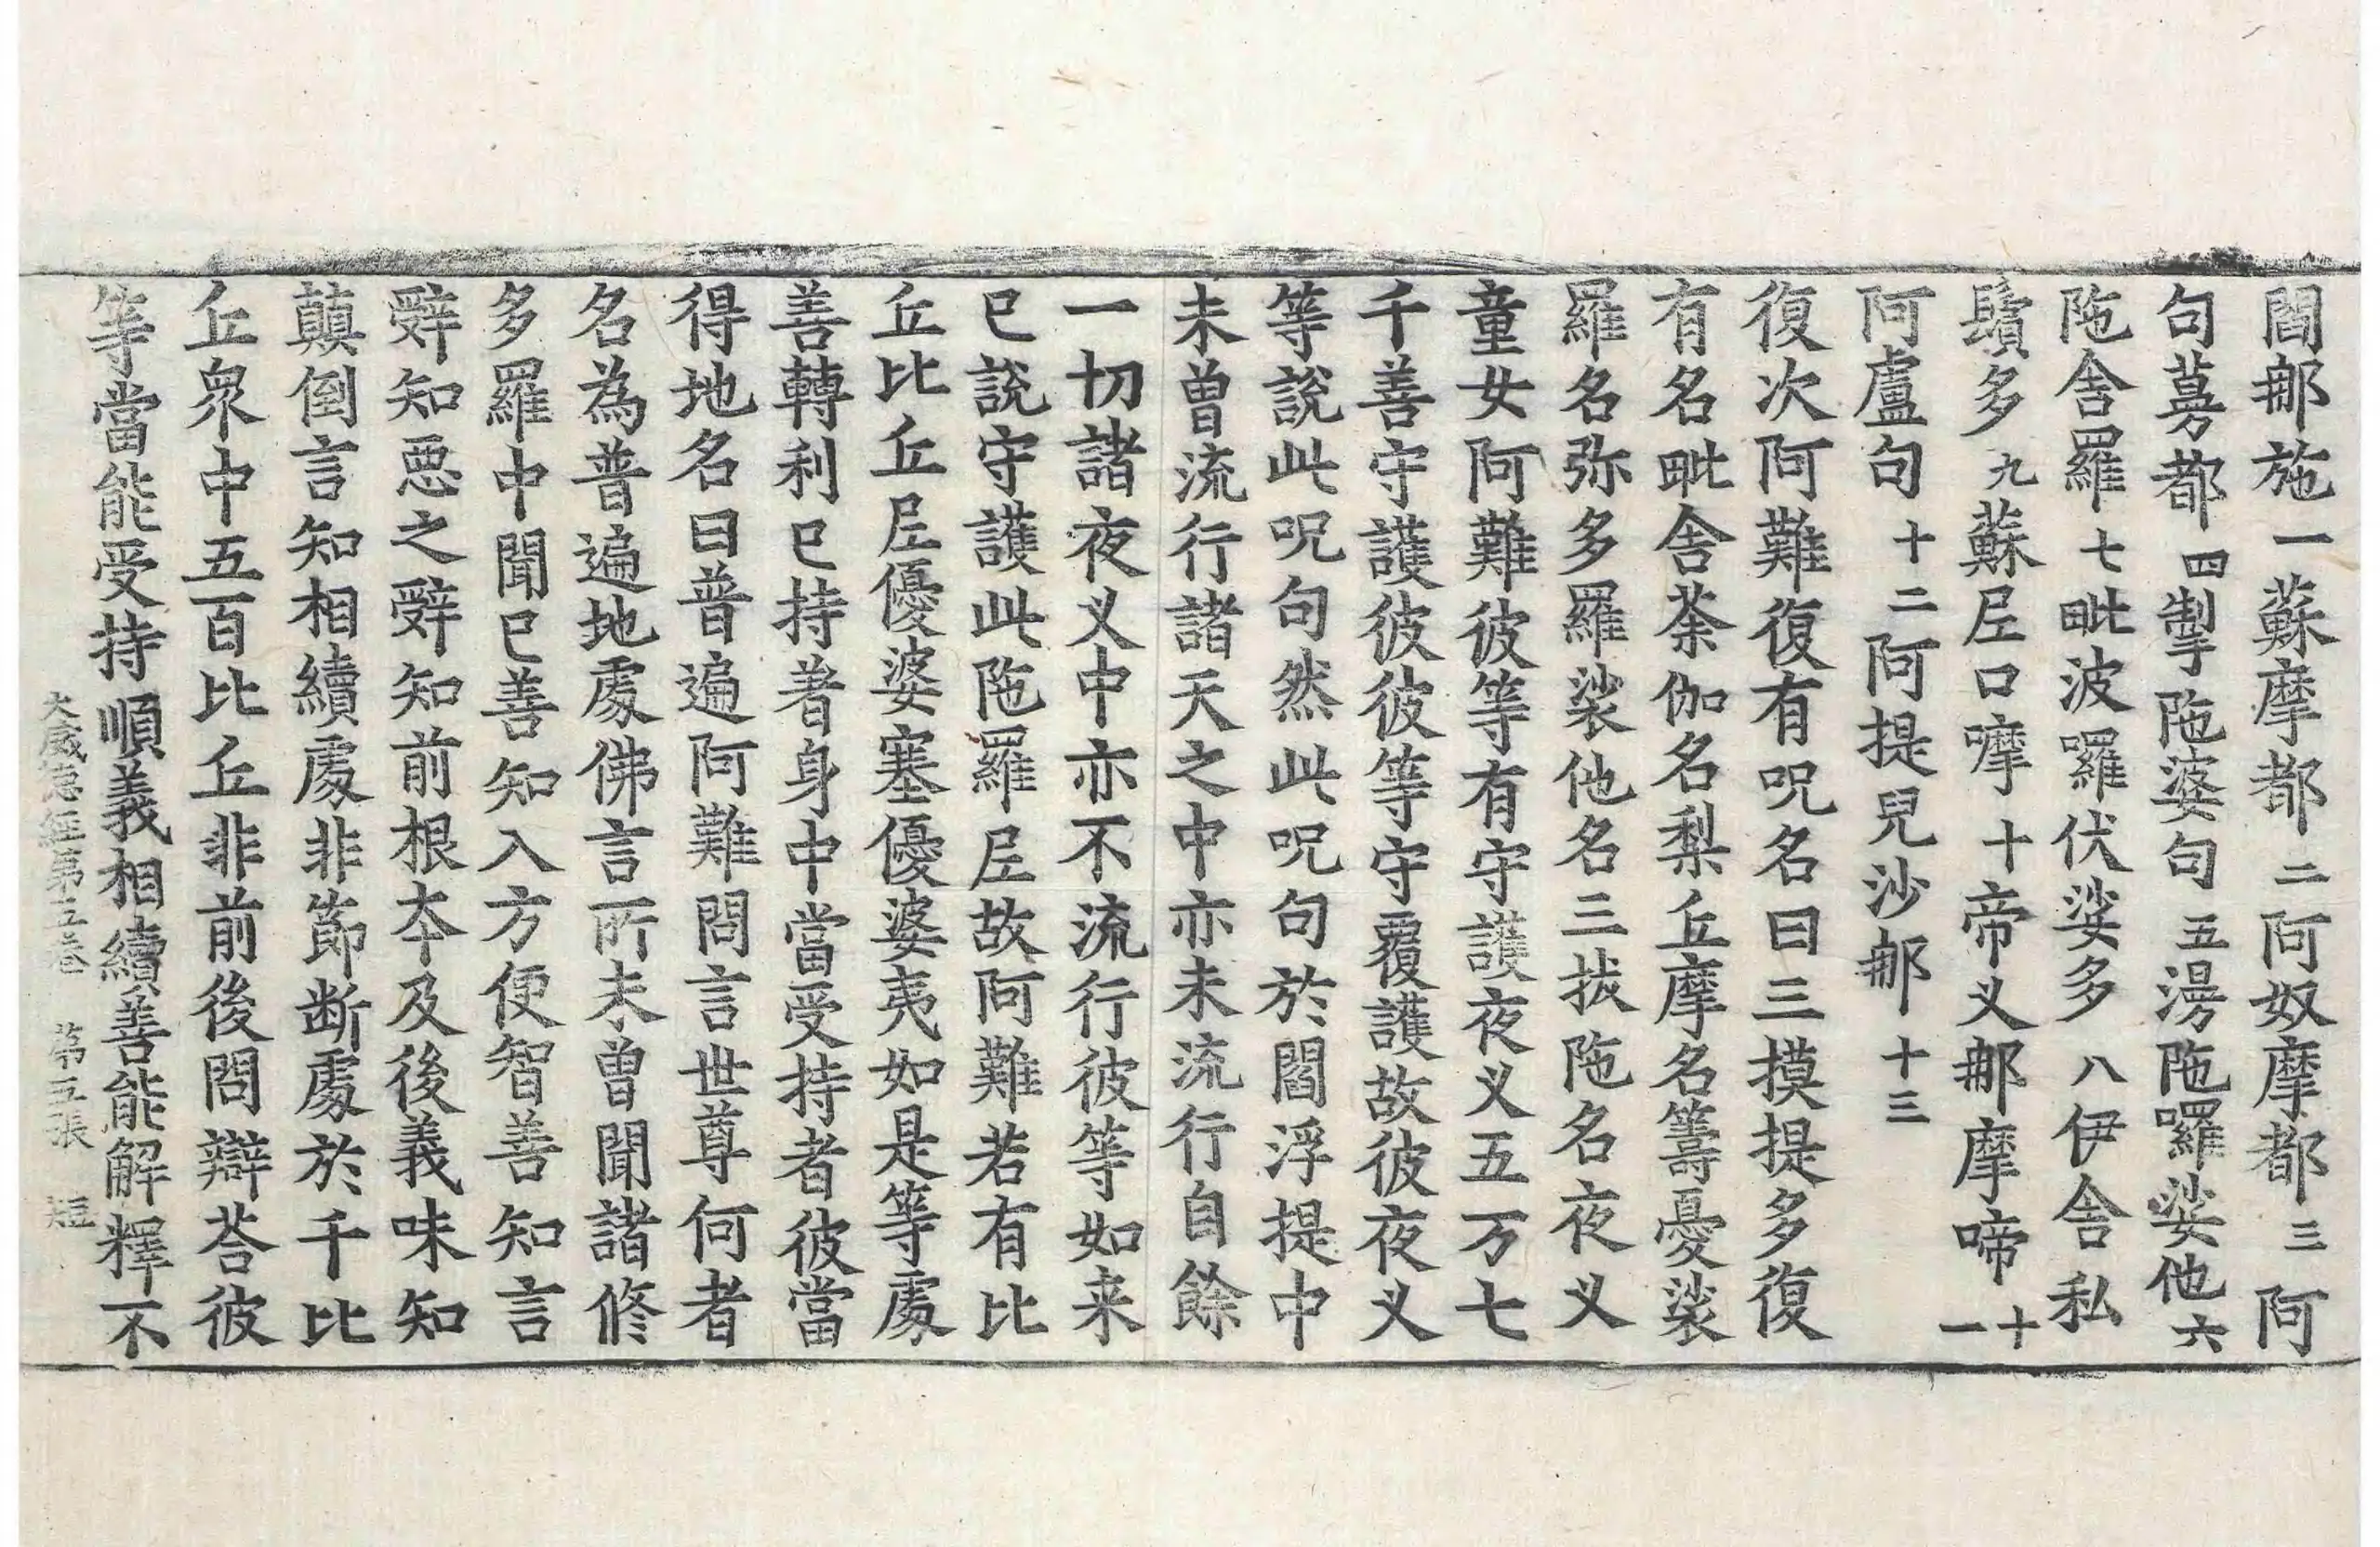 閻那施一蘇摩都二阿奴摩都三阿
句蕚都四掣陁婆句五湯陁囉娑他六
陁舍羅七毗波囉伏娑多八伊舍私
鬚多九蘇𡰱口嚤十帝义那摩啼十一
阿盧句十二阿提兒沙那十三
復次阿難復有呪名曰三摸提多復
有名毗舍荼伽名梨丘摩名籌憂裟
羅名弥多羅裟他名三拔陁名夜义
童女阿難彼等有守護夜义五万七
千善守護彼彼等守覆護故彼夜义
等說此呪句然此呪句於閻浮提中
未曾流行諸天之中亦未流行自餘
一切諸夜义中亦不流行彼等如来
已說守護此陁羅𡰱故阿難若有比
丘比丘𡰱優婆塞優婆夷如是等處
善轉利已持著身中當受持者彼當
得地名曰普遍阿難問言世尊何者
名為普遍地處佛言所未曾聞諸修
多羅中聞已善知入方便智善知言
辤知惡之辤知知前根夲及後義味知
顛倒言知相續處非節断處於千比
丘衆中五百比丘非前後問辯荅彼
等當能受持順義相續善能解釋不
大威德經第五卷 第五張 短